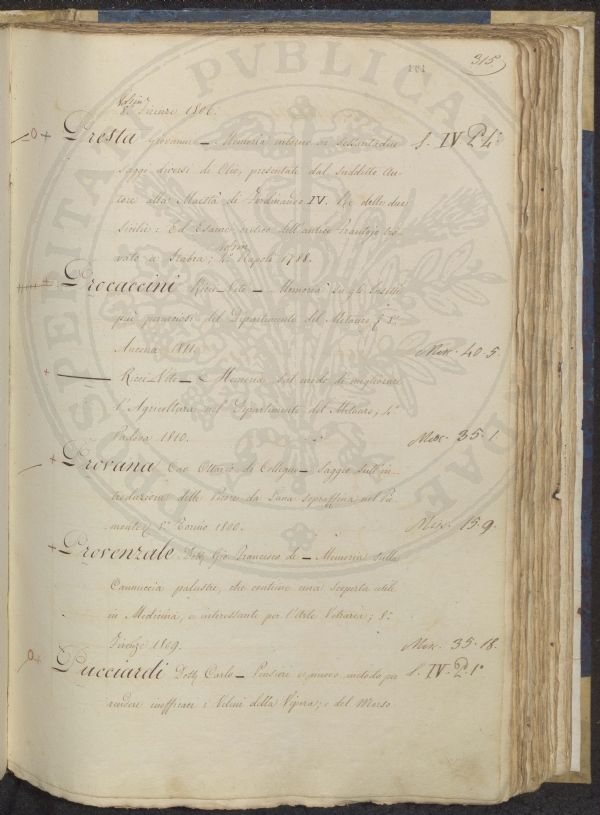 315.
8.° Firenze 1806.
Presta Giovanni — Memoria intorno ai Sessantadue S. IV P. 4°
saggi diversi di Olio, presentati dal suddetto Au-
tore alla Maestà di Ferdinando IV. Re delle due
Sicilie: Ed Esame critico dell'antico Frantojo tro-
vato a Stabia; 4.° Napoli 1788.
Procaccini Ricci Vito — Memoria su gli Insetti
più perniciosi del Dipartimento del Metauro; 8.°
Ancona 1811. Misc. 40. 5.
——— Ricci Vito — Memoria sul modo di migliorare
l'Agricoltura nel Dipartimento del Metauro; 4.°
Padova 1810. Misc. 35. 1
Provana Cav. Ottavio di Collegno — Saggio sull'in-
troduzione delle Pecore da Lana sopraffina nel Pie-
monte; 8.° Torino 1806. Misc. 15. 9.
Provenzale Dott. Gio. Francesco de — Memoria sulla
Cannuccia palustre, che contiene una scoperta utile
in Medicina, e interessante per l'Arte Vetraria; 8.°
Firenze 1809. Misc. 35. 18.
Pucciardi Dott. Carlo — Pensieri e nuovo metodo per S. IV. P. 1°
rendere inefficace i Veleni della Vipera; e del Morso
PVBLICAE
PROSPERITATI